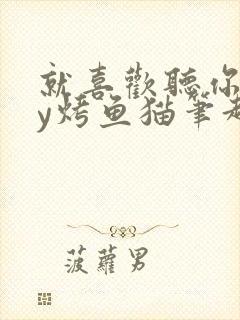 就喜歡聽你
y烤鱼猫筆趣
菠蘿男